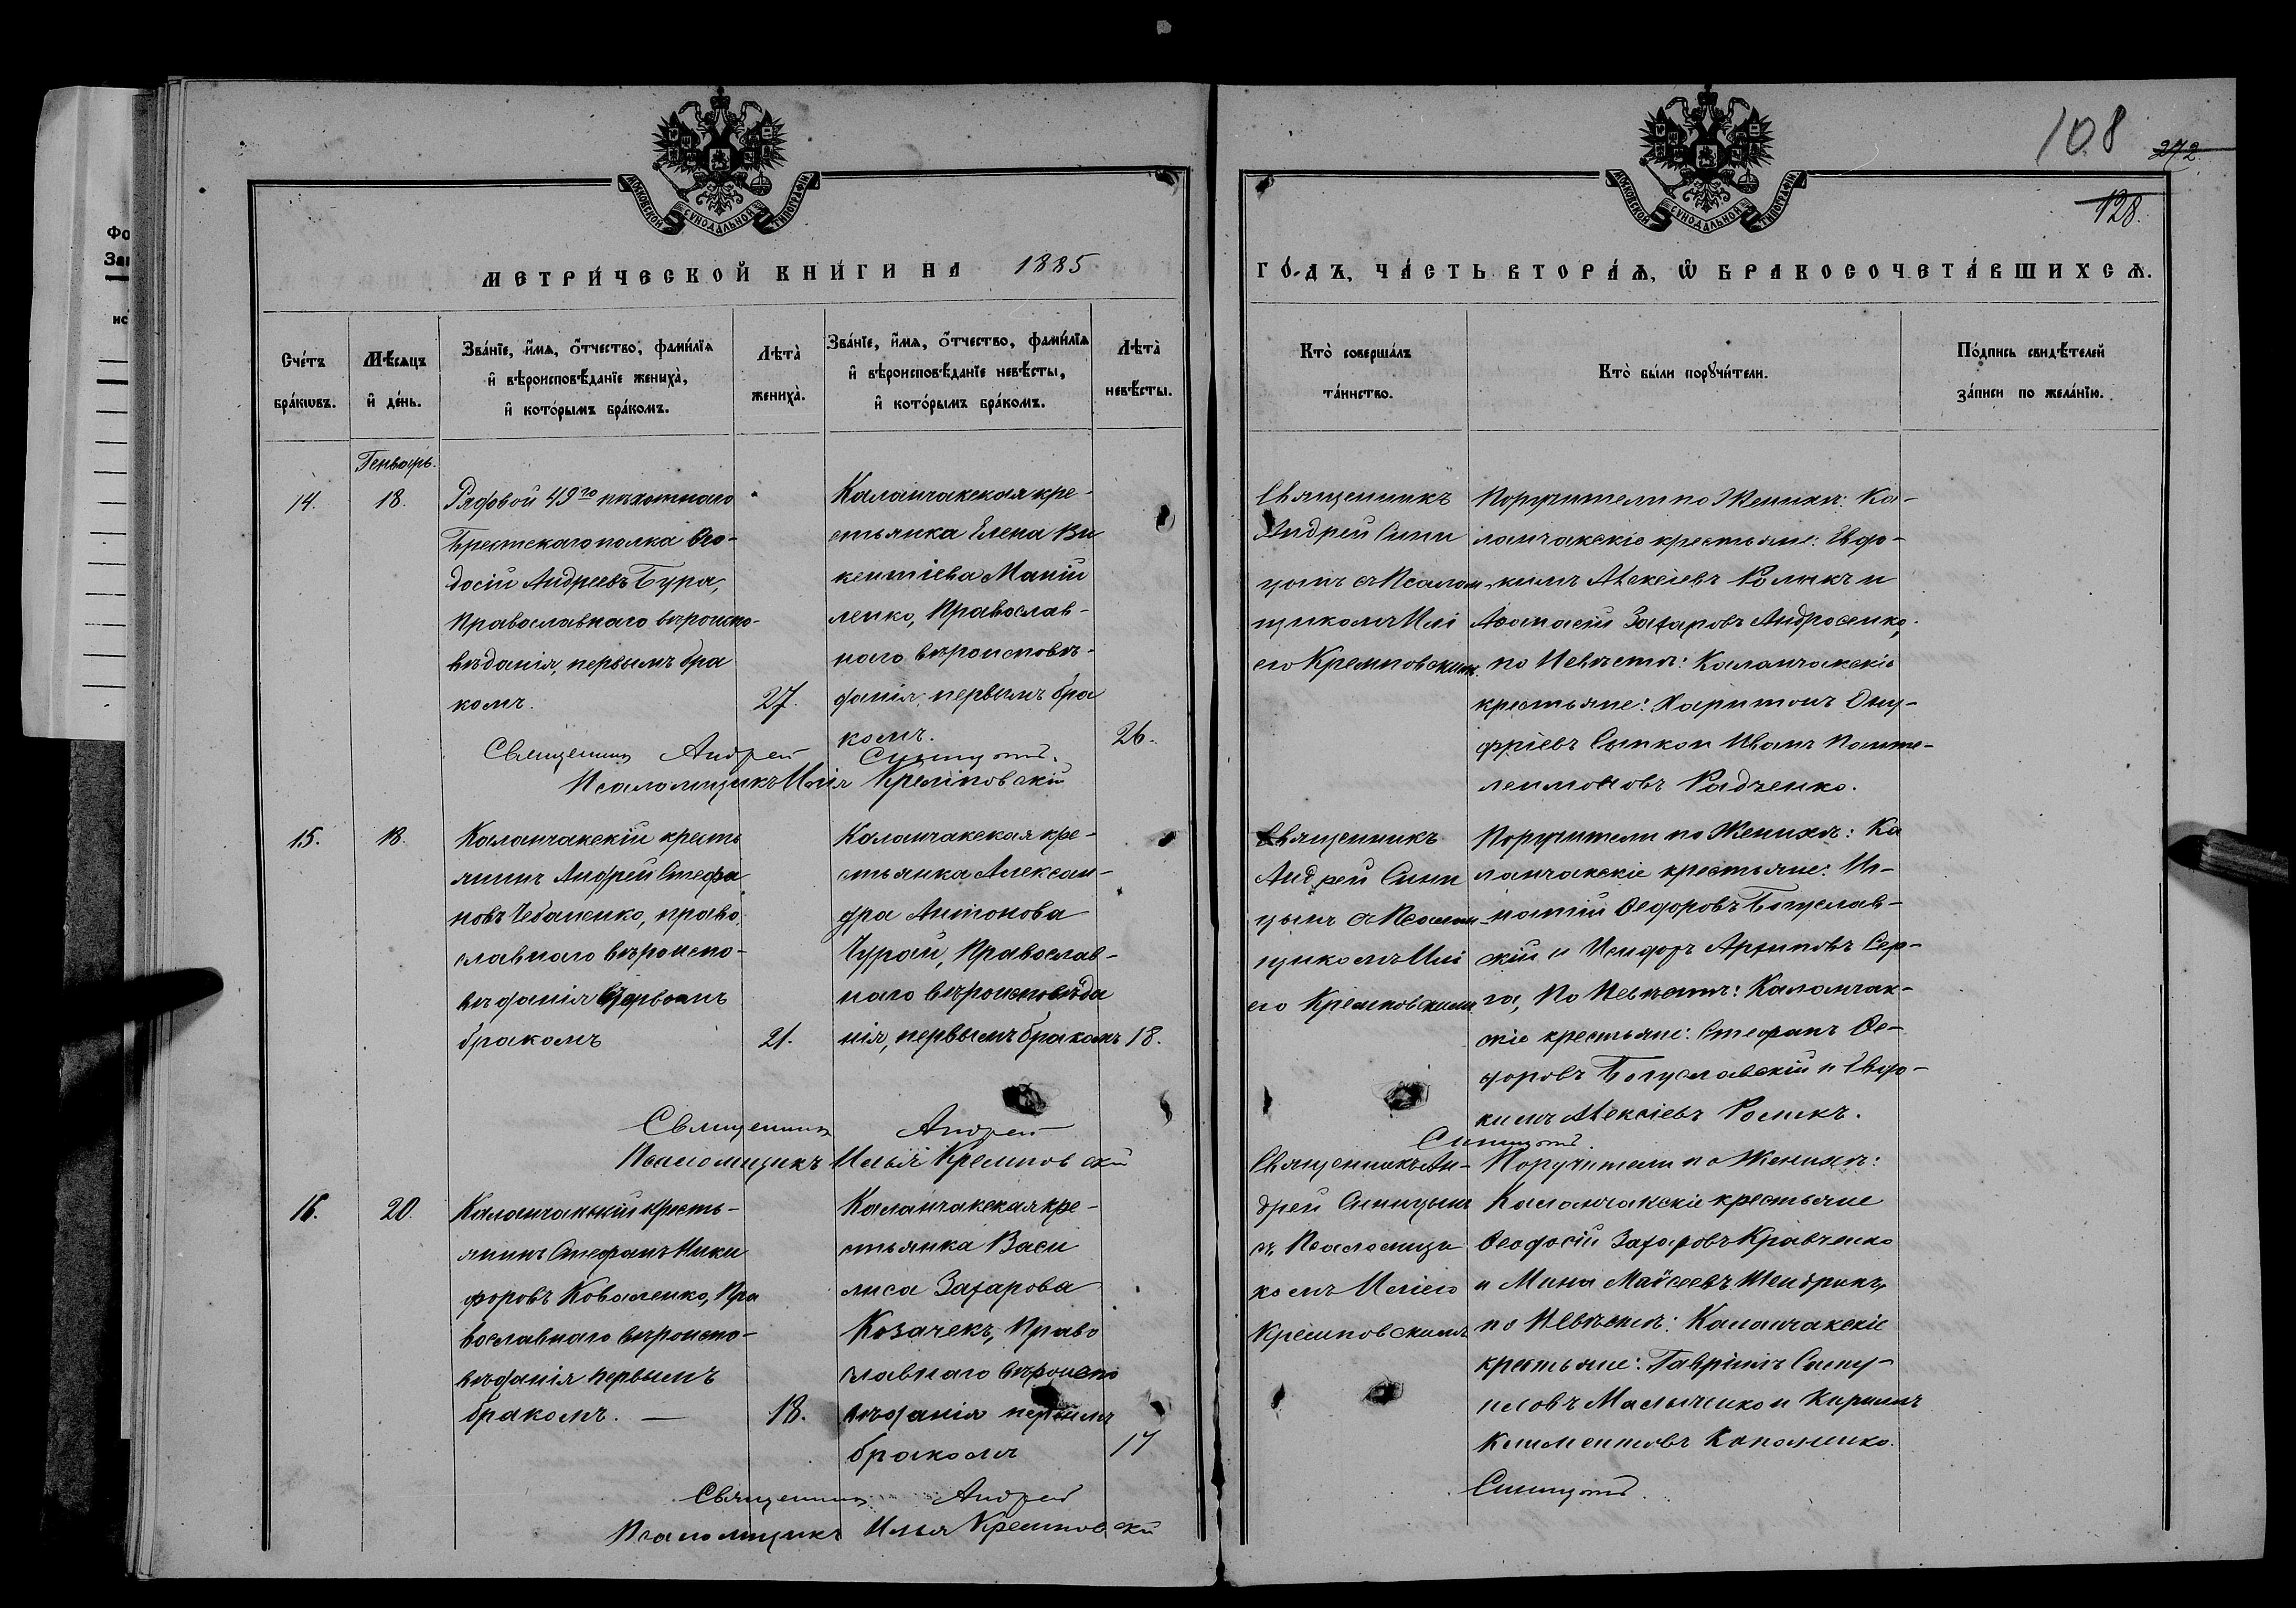 Фо
Зап
ис
МОСКОВСКОЙ СѴНОДАЛЬНОЙ ТИПОГРАФІИ
МОСКОВСКОЙ СѴНОДАЛЬНОЙ ТИПОГРАФІИ
108
272.
128.
МЕТРИ́ЧЕСКОЙ КНИ́ГИ НА 1885
ГО́ДЪ, ЧА́СТЬ ВТОРА́Ѧ, Ѡ҆ БРАКОСОЧЕТА́ВШИХСѦ.
Сче́тъ
бра́кѡвъ.
Мѣ́сѧцъ
и҆ де́нь.
Зва́нїе, и҆́мѧ, ѻ҆́тчество, фами́лїѧ
и҆ вѣроисповѣ́данїе жениха̀,
и҆ кото́рымъ бра́комъ.
Лѣта̀
жениха̀.
Зва́нїе, и҆́мѧ, ѻ҆́тчество, фами́лїѧ
и҆ вѣроисповѣ́данїе невѣ́сты,
и҆ кото́рымъ бра́комъ.
Лѣта̀
невѣ́сты.
Кто̀ соверша́лъ
та́инство.
Кто̀ бы́ли порꙋчи́тели.
По́дпись свидѣ́телей
за́писи по жела́нїю.
Генварь.
14.
18.
Рядовой 49го пѣхотнаго
Брестскаго полка Ѳео-
досій Андреевъ Бура,
православнаго вѣроиспо-
вѣданія, первымъ бра
комъ.
27.
Каланчакская кре-
стьянка Елена Ви
кентіева Маній
ленко, Православ-
наго вѣроисповѣ-
данія, первымъ бра
комъ.
26.
Священникъ
Андрей Сини
цынъ съ Псалом
щикомъ Илі
ею Кремповскимъ.
Поручители по Женихѣ: Ка-
ланчакскіе крестьяне: Евдо-
кимъ Алексіевъ Роликъ и
Аѳанасій Захаровъ Андросенко,
по Невѣстѣ: Каланчакскіе
крестьяне: Харитонъ Ону-
фріевъ Сытко и Иванъ Панте-
леимоновъ Радченко.
Священникъ Андрей Синицынъ.
Псаломщикъ Илія Кремповскій
15.
18.
Каланчакскій кресть
янинъ Андрей Стефа
новъ Чебаненко, право
славнаго вѣроиспо-
вѣданія первымъ
бракомъ
21.
Каланчакская кре-
стьянка Алексан-
дра Антонова
Чурай, Православ-
наго вѣроисповѣда
нія, первымъ бракомъ
18.
Священникъ
Андрей Сини
цынъ съ Псалом
щикомъ Илі
ею Кремповскимъ
Поручители по Женихѣ: Ка
ланчакскіе крестьяне: Иг-
натій Ѳедоровъ Богуслав-
скій и Исидоръ Архиповъ Сер-
га, По Невѣстѣ: Каланчак-
скіе крестьяне: Стефанъ Ѳе-
доровъ Богуславскій и Евдо-
кимъ Алексіевъ Роликъ.
Священникъ Андрей Синицынъ.
Псаломщикъ Илья Кремповскій
16.
20.
Каланчакскій кресть-
янинъ Стефанъ Ники
форовъ Коваленко, Пра
вославнаго вѣроиспо-
вѣданія первымъ
бракомъ. —
18.
Каланчакская кре-
стьянка Васи
лиса Захарова
Козачекъ, Право
славнаго вѣроиспо
вѣданія первымъ
бракомъ
17
Священникъ Ан-
дрей Синицынъ
съ Псаломщи
комъ Иліею
Кремповскимъ
Поручители по Женихѣ:
Каланчакскіе крестьяне
Ѳеодосій Захаровъ Кравченко
и Мина Маѵсеевъ Шендрикъ,
по Невѣстѣ: Каланчакскіе
крестьяне: Гавріилъ Саму-
иловъ Малыченко и Кириллъ
Климентовъ Кononenko.
Священникъ Андрей Синицынъ.
Псаломщикъ Илья Кремповскій